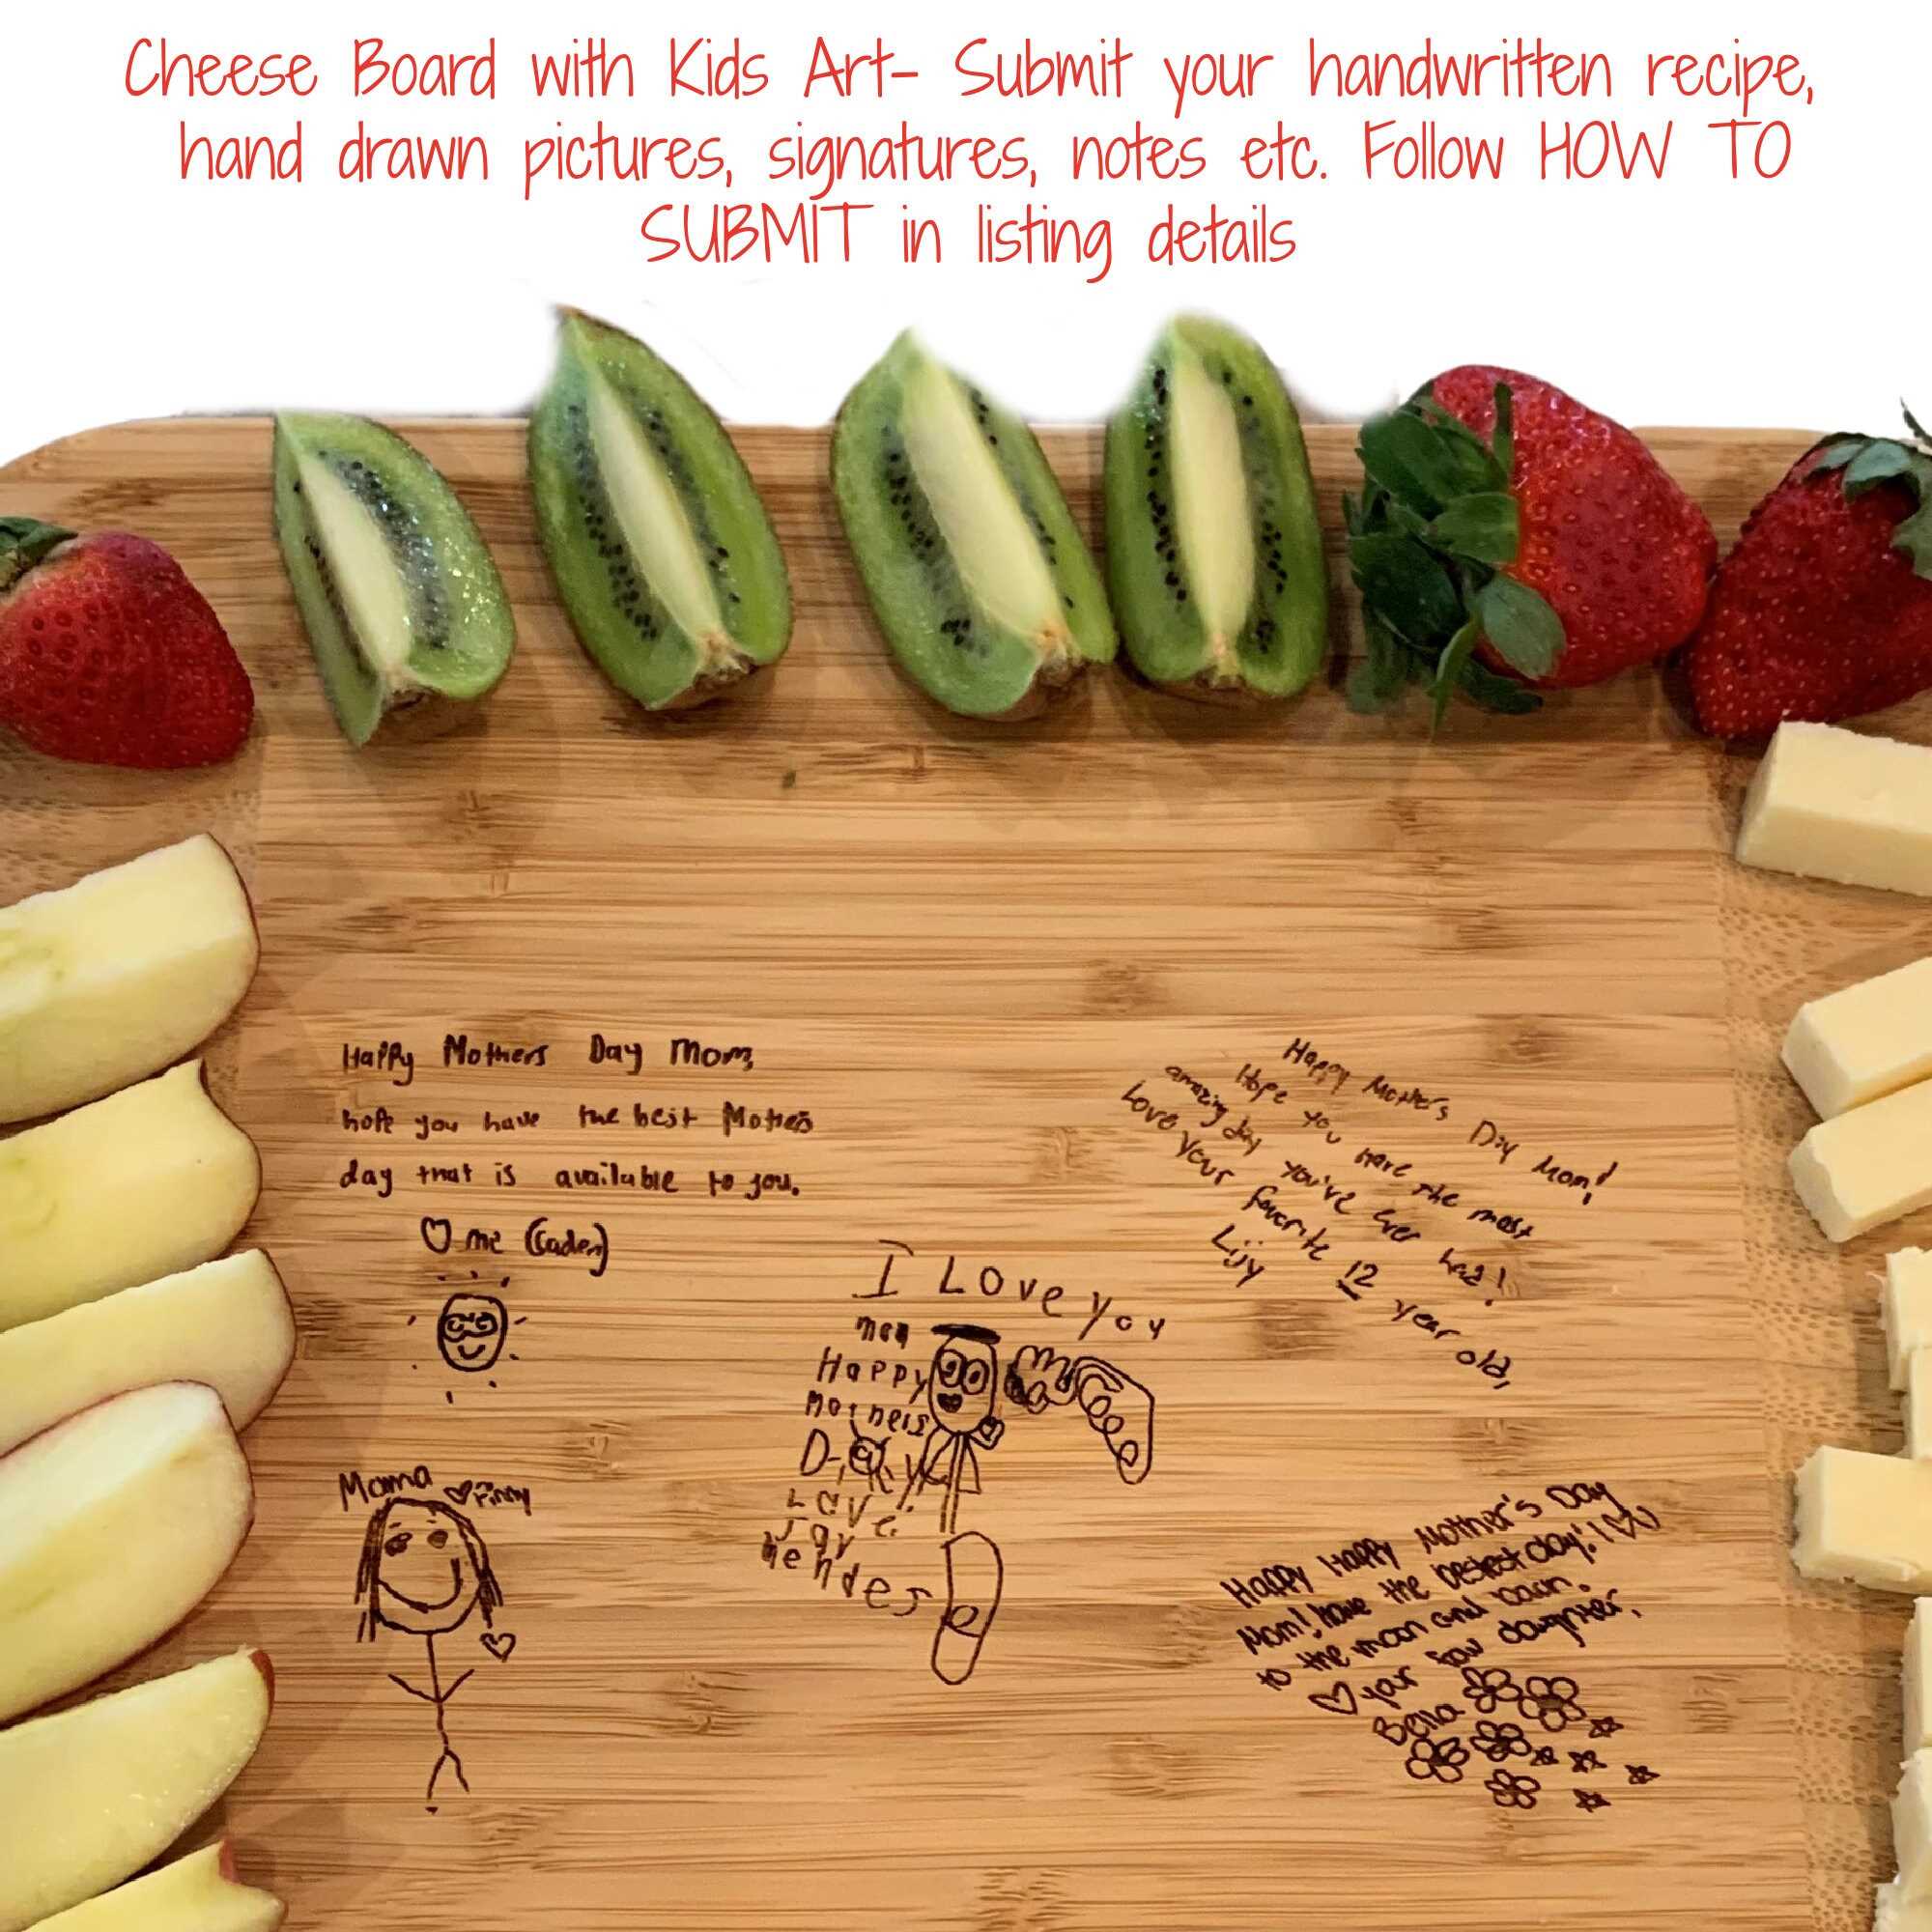 Cheese Board with Kids Art- Submit your handwritten recipe,
hand drawn pictures, signatures, notes etc. Follow HOW TO
SUBMIT in listing details
Happy Mothers Day Mom,
hope you have the best Mothers
day that is available to you.
me (Caden)
Happy Mother's Day Mom!
Hope you have the most
amazing day you've ever had!
Love your favorite 12 year old,
I Love you
mom
Happy
mothers
Day
Love
Jay
Mama
Happy Happy Mother's Day
Mom! have the bestest day!!
to the moon and back.
your fav daughter,
Bella